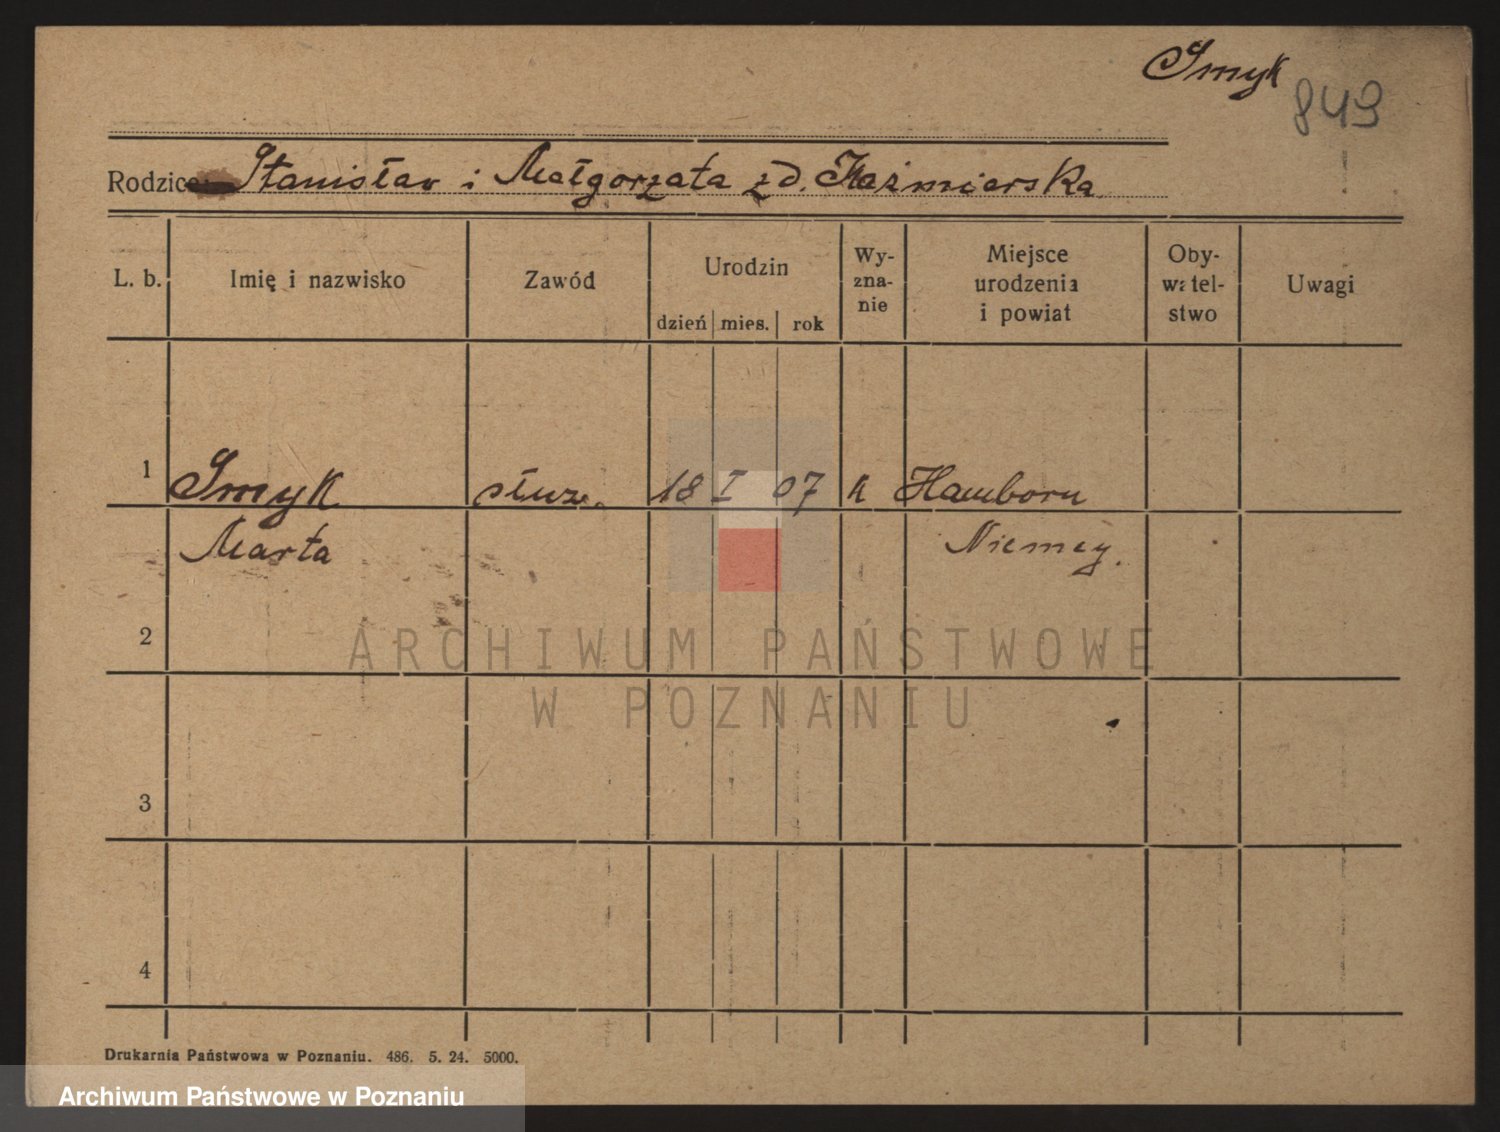 Smyk
849
Rodzice: Stanisław i Małgorzata z d. Kaźmierska
L. b. Imię i nazwisko Zawód Urodzin dzień mies. rok Wy-zna-nie Miejsce urodzenia i powiat Oby-watel-stwo Uwagi
1 Smyk służ. 18 I 07 k Hamborn
Marta Niemcy.
2
3
4
ARCHIWUM PAŃSTWOWE
W POZNANIU
Drukarnia Państwowa w Poznaniu. 486. 5. 24. 5000.
Archiwum Państwowe w Poznaniu